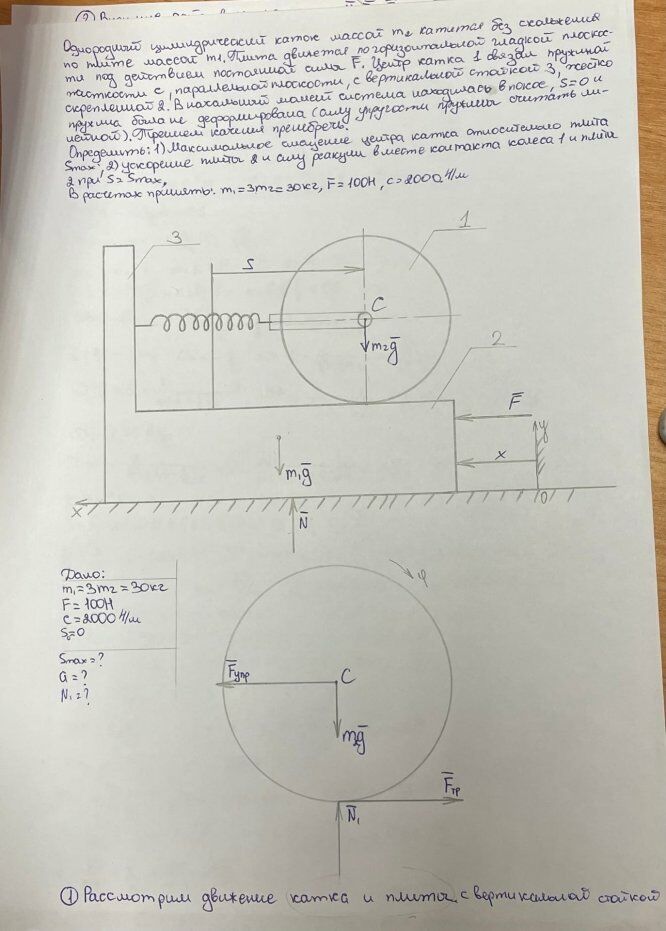 Однородный цилиндрический каток массой m₂ катится без скольжения
по плите массой m₁. Плита движется по горизонтальной гладкой плоскос-
ти под действием постоянной силы F̅. Центр катка 1 связан пружиной
жесткости с, параллельной плоскости, с вертикальной стойкой 3, жестко
скрепленной 2. В начальный момент система находилась в покое, S=0 и
пружина была не деформирована (силу упругости пружины считать ли-
нейной). Трением качения пренебречь.
Определить: 1) Максимальное смещение центра катка относительно плиты
Smax; 2) ускорение плиты 2 и силу реакции в месте контакта колеса 1 и плиты
2 при S=Smax,
В расчетах принять: m₁=3m₂=30кг, F̅=100Н, с=2000 Н/м
3
1
S
C
m₂g̅
2
F̅
y
x
m₁g̅
x
N̅
0
Дано:
m₁=3m₂=30кг
F=100Н
с=2000 Н/м
S₀=0
Smax=?
a=?
N₁=?
φ
F̅упр
C
m₂g̅
F̅тр
N̅₁
① Рассмотрим движение катка и плиты с вертикальной стойкой